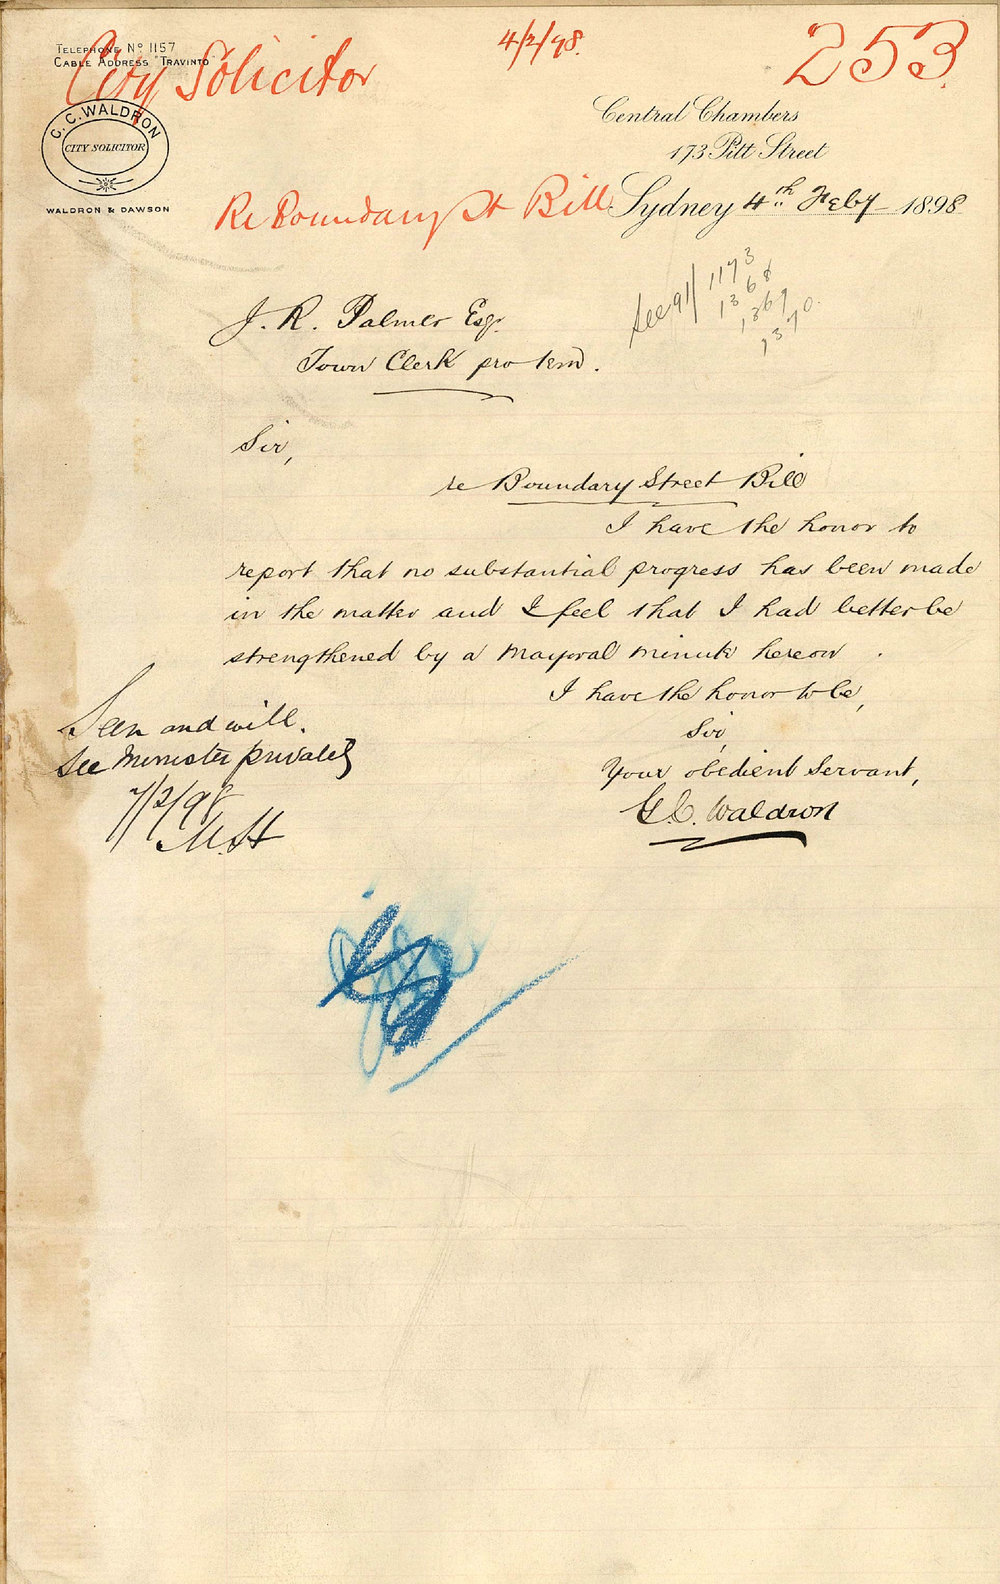 4/2/98.
253
City Solicitor
TELEPHONE Nº 1157
CABLE ADDRESS "TRAVINTO"
C. C. WALDRON
CITY SOLICITOR
WALDRON & DAWSON
Central Chambers
173 Pitt Street
Re Boundary St Bill
Sydney 4th Feby 1898
See 91/1173
1368
1369
1370.
J. R. Palmer Esqr.
Town Clerk pro tem.
Sir,
re Boundary Street Bill
I have the honor to
report that no substantial progress has been made
in the matter and I feel that I had better be
strengthened by a Mayoral minute hereon.
I have the honor to be,
Sir,
Your obedient Servant,
G. C. Waldron
Seen and will.
See Minister privately
7/2/98